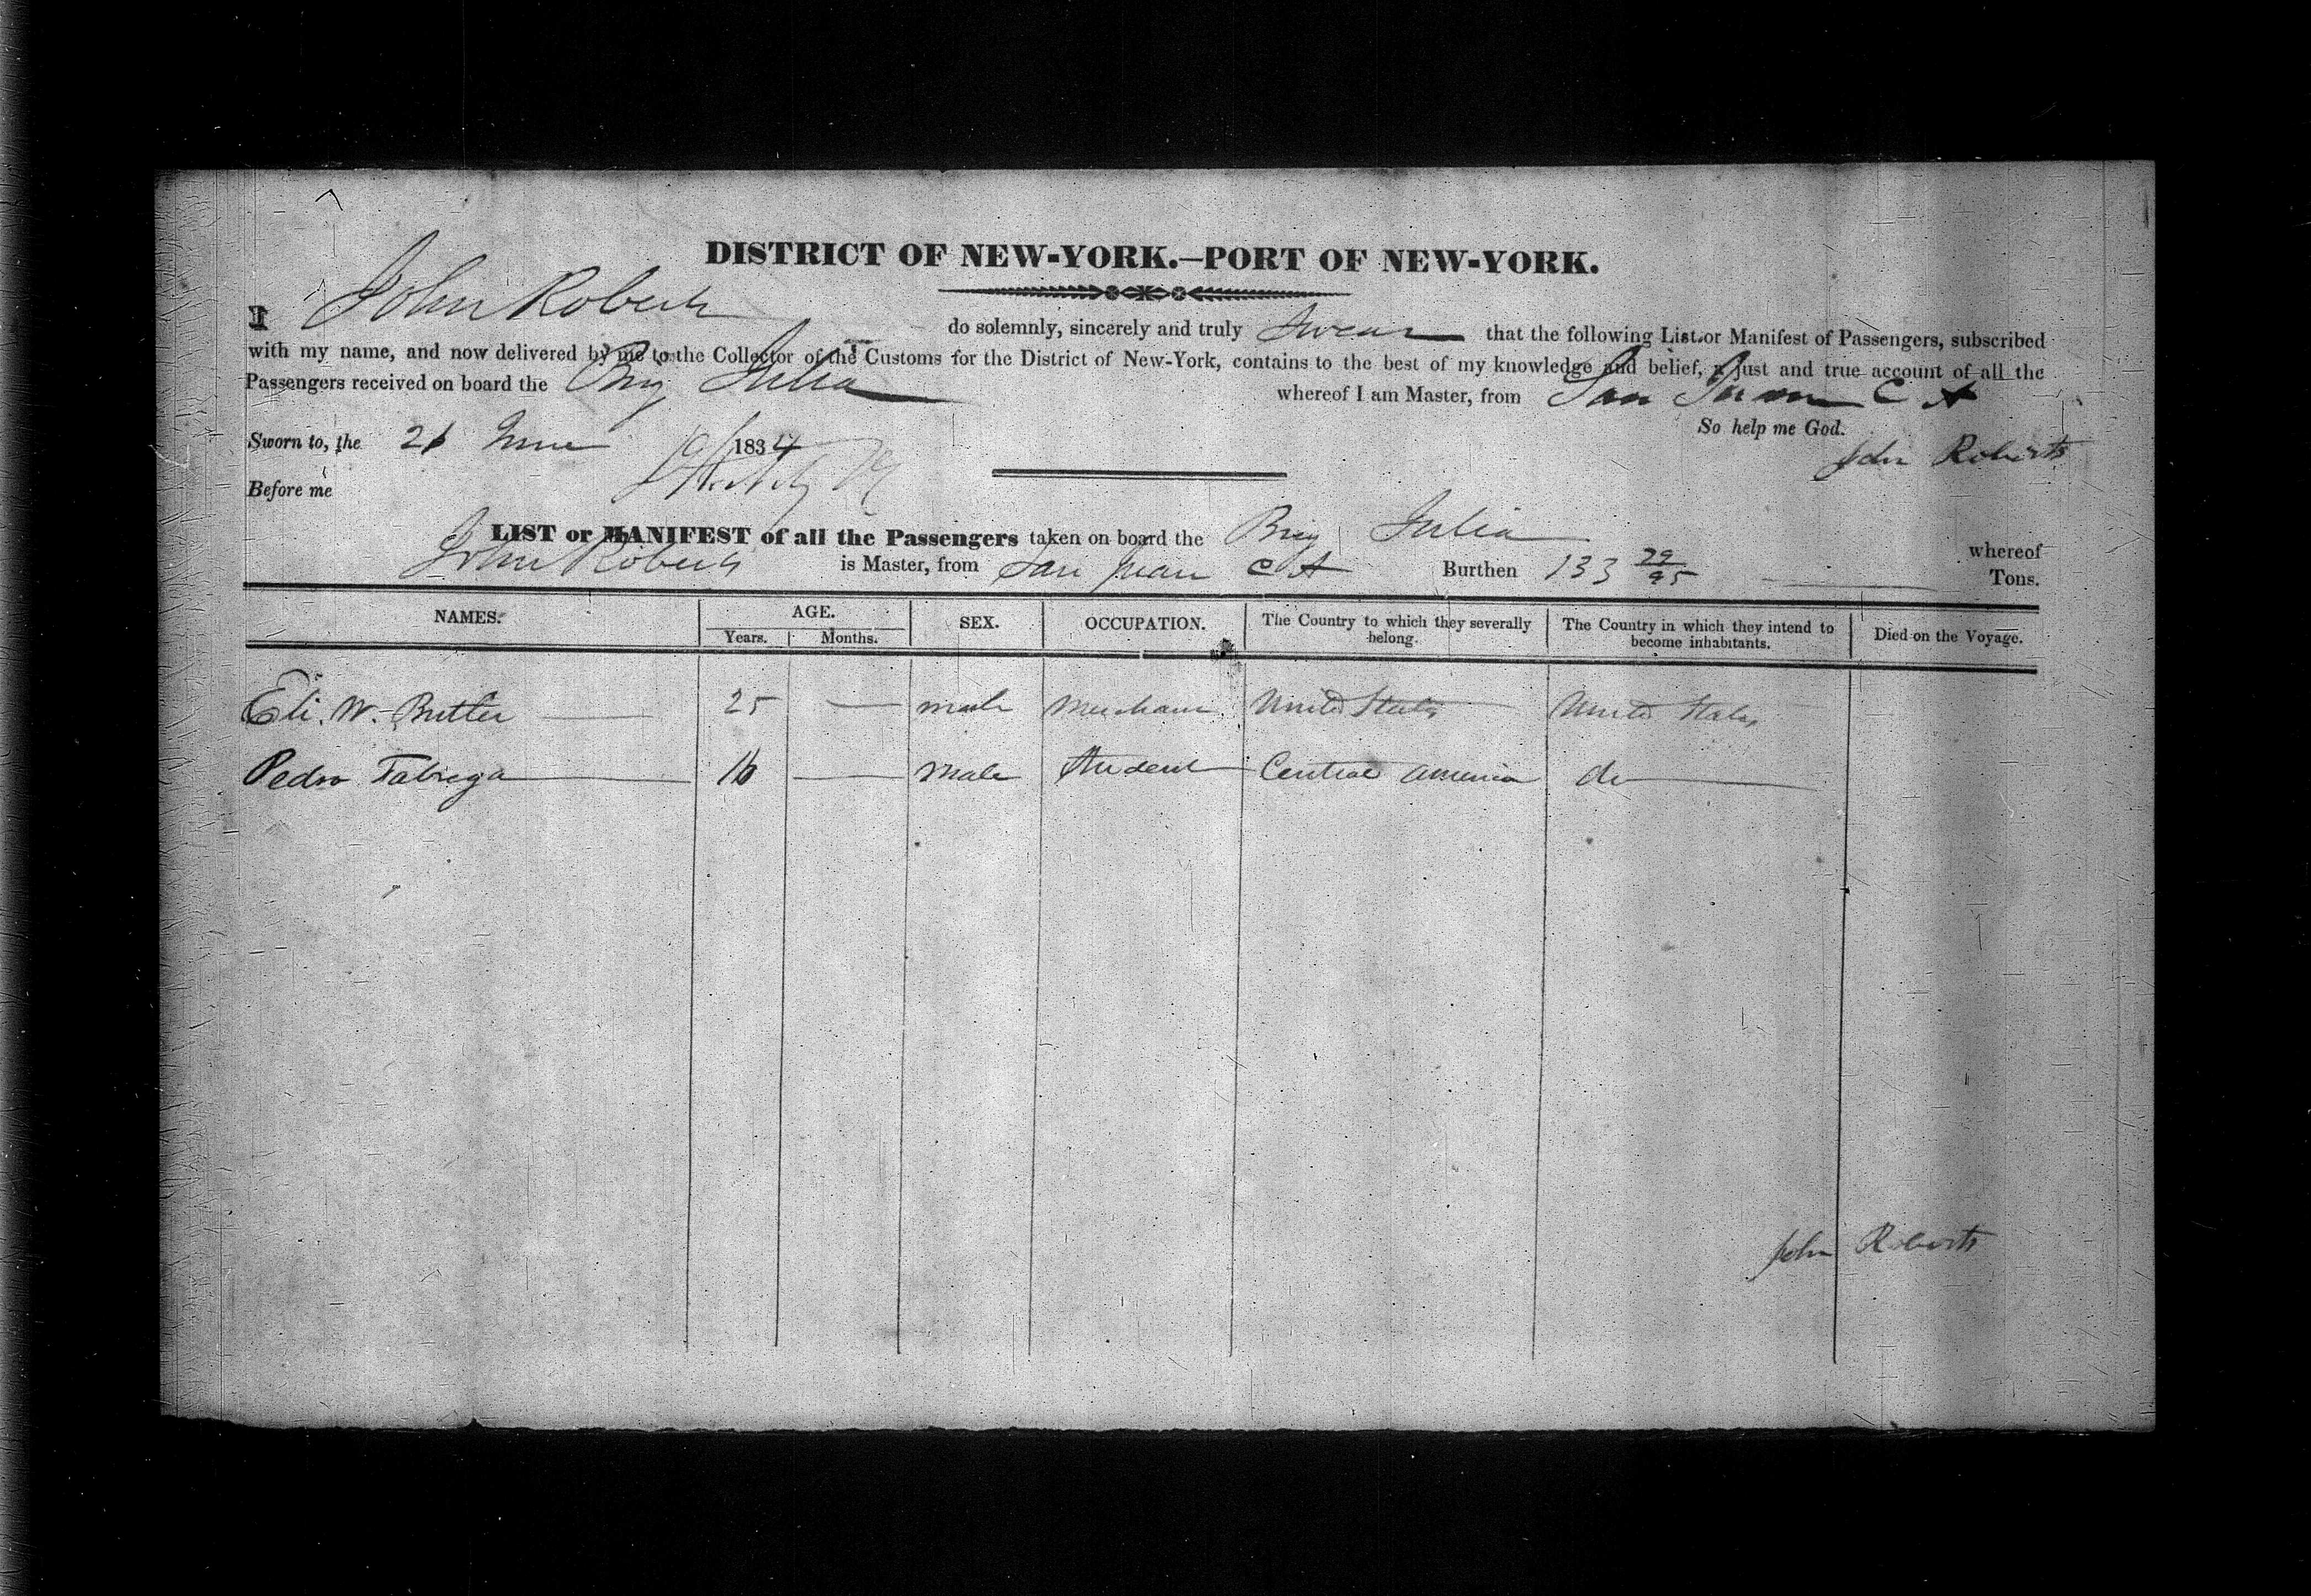 DISTRICT OF NEW-YORK.—PORT OF NEW-YORK.
I John Roberts do solemnly, sincerely and truly swear that the following List or Manifest of Passengers, subscribed
with my name, and now delivered by me to the Collector of the Customs for the District of New-York, contains to the best of my knowledge and belief, a just and true account of all the
Passengers received on board the Brig Julia whereof I am Master, from San Juan C A
So help me God.
Sworn to, the 21 June 1834
John Roberts
Before me
LIST or MANIFEST of all the Passengers taken on board the Brig Julia whereof
John Roberts is Master, from San Juan C A Burthen 133 29/95 Tons.
NAMES. AGE. SEX. OCCUPATION. The Country to which they severally belong. The Country in which they intend to become inhabitants. Died on the Voyage.
Years. Months.
Eli. W. Butler — 25 — male Merchant United States United States
Pedro Fabrega — 16 — male Student Central America do
John Roberts